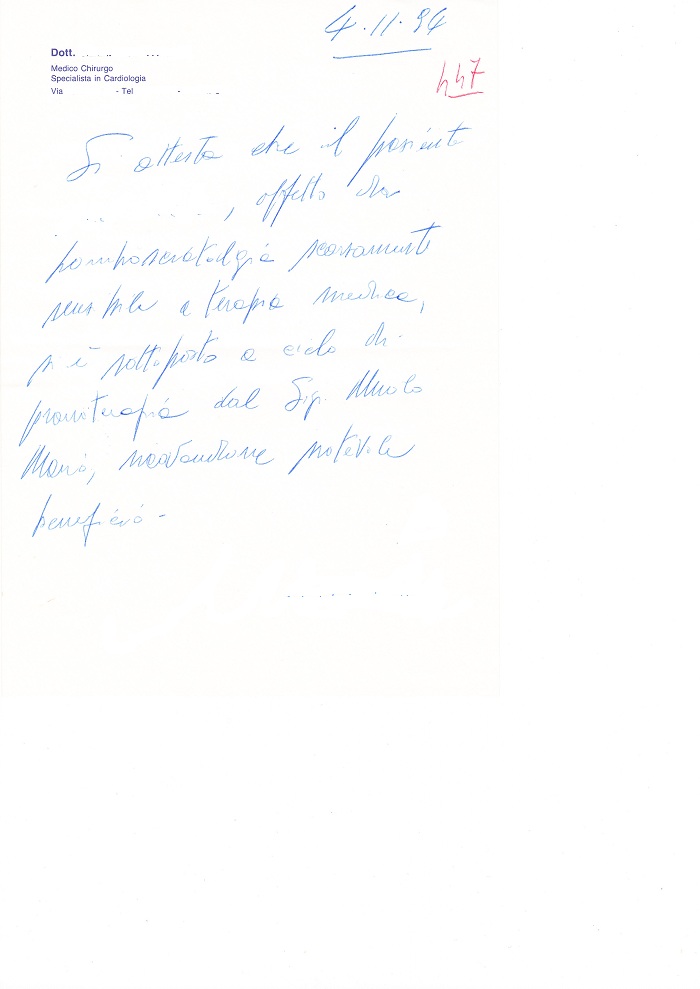 4.11.94
Dott.
Medico Chirurgo
Specialista in Cardiologia
Via - Tel -
447
Si attesta che il paziente
, affetto da
lombosciatalgia scarsamente
sensibile a terapia medica,
si è sottoposto a ciclo di
pranoterapia dal Sig.
Mario, ricavandone notevole
beneficio -